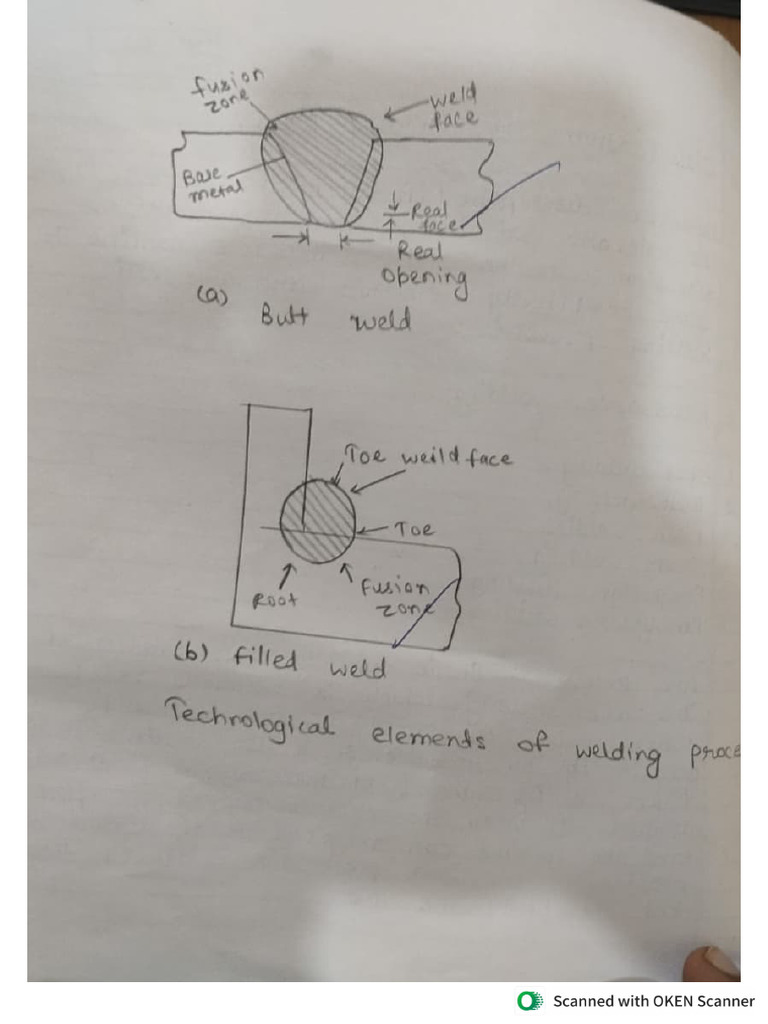 fusion
zone
weld
face
Base
metal
Real
face
Real
opening
(a) Butt weld
Toe weild face
Toe
Root
Fusion
zone
(b) filled weld
Technological elements of welding proce
Scanned with OKEN Scanner